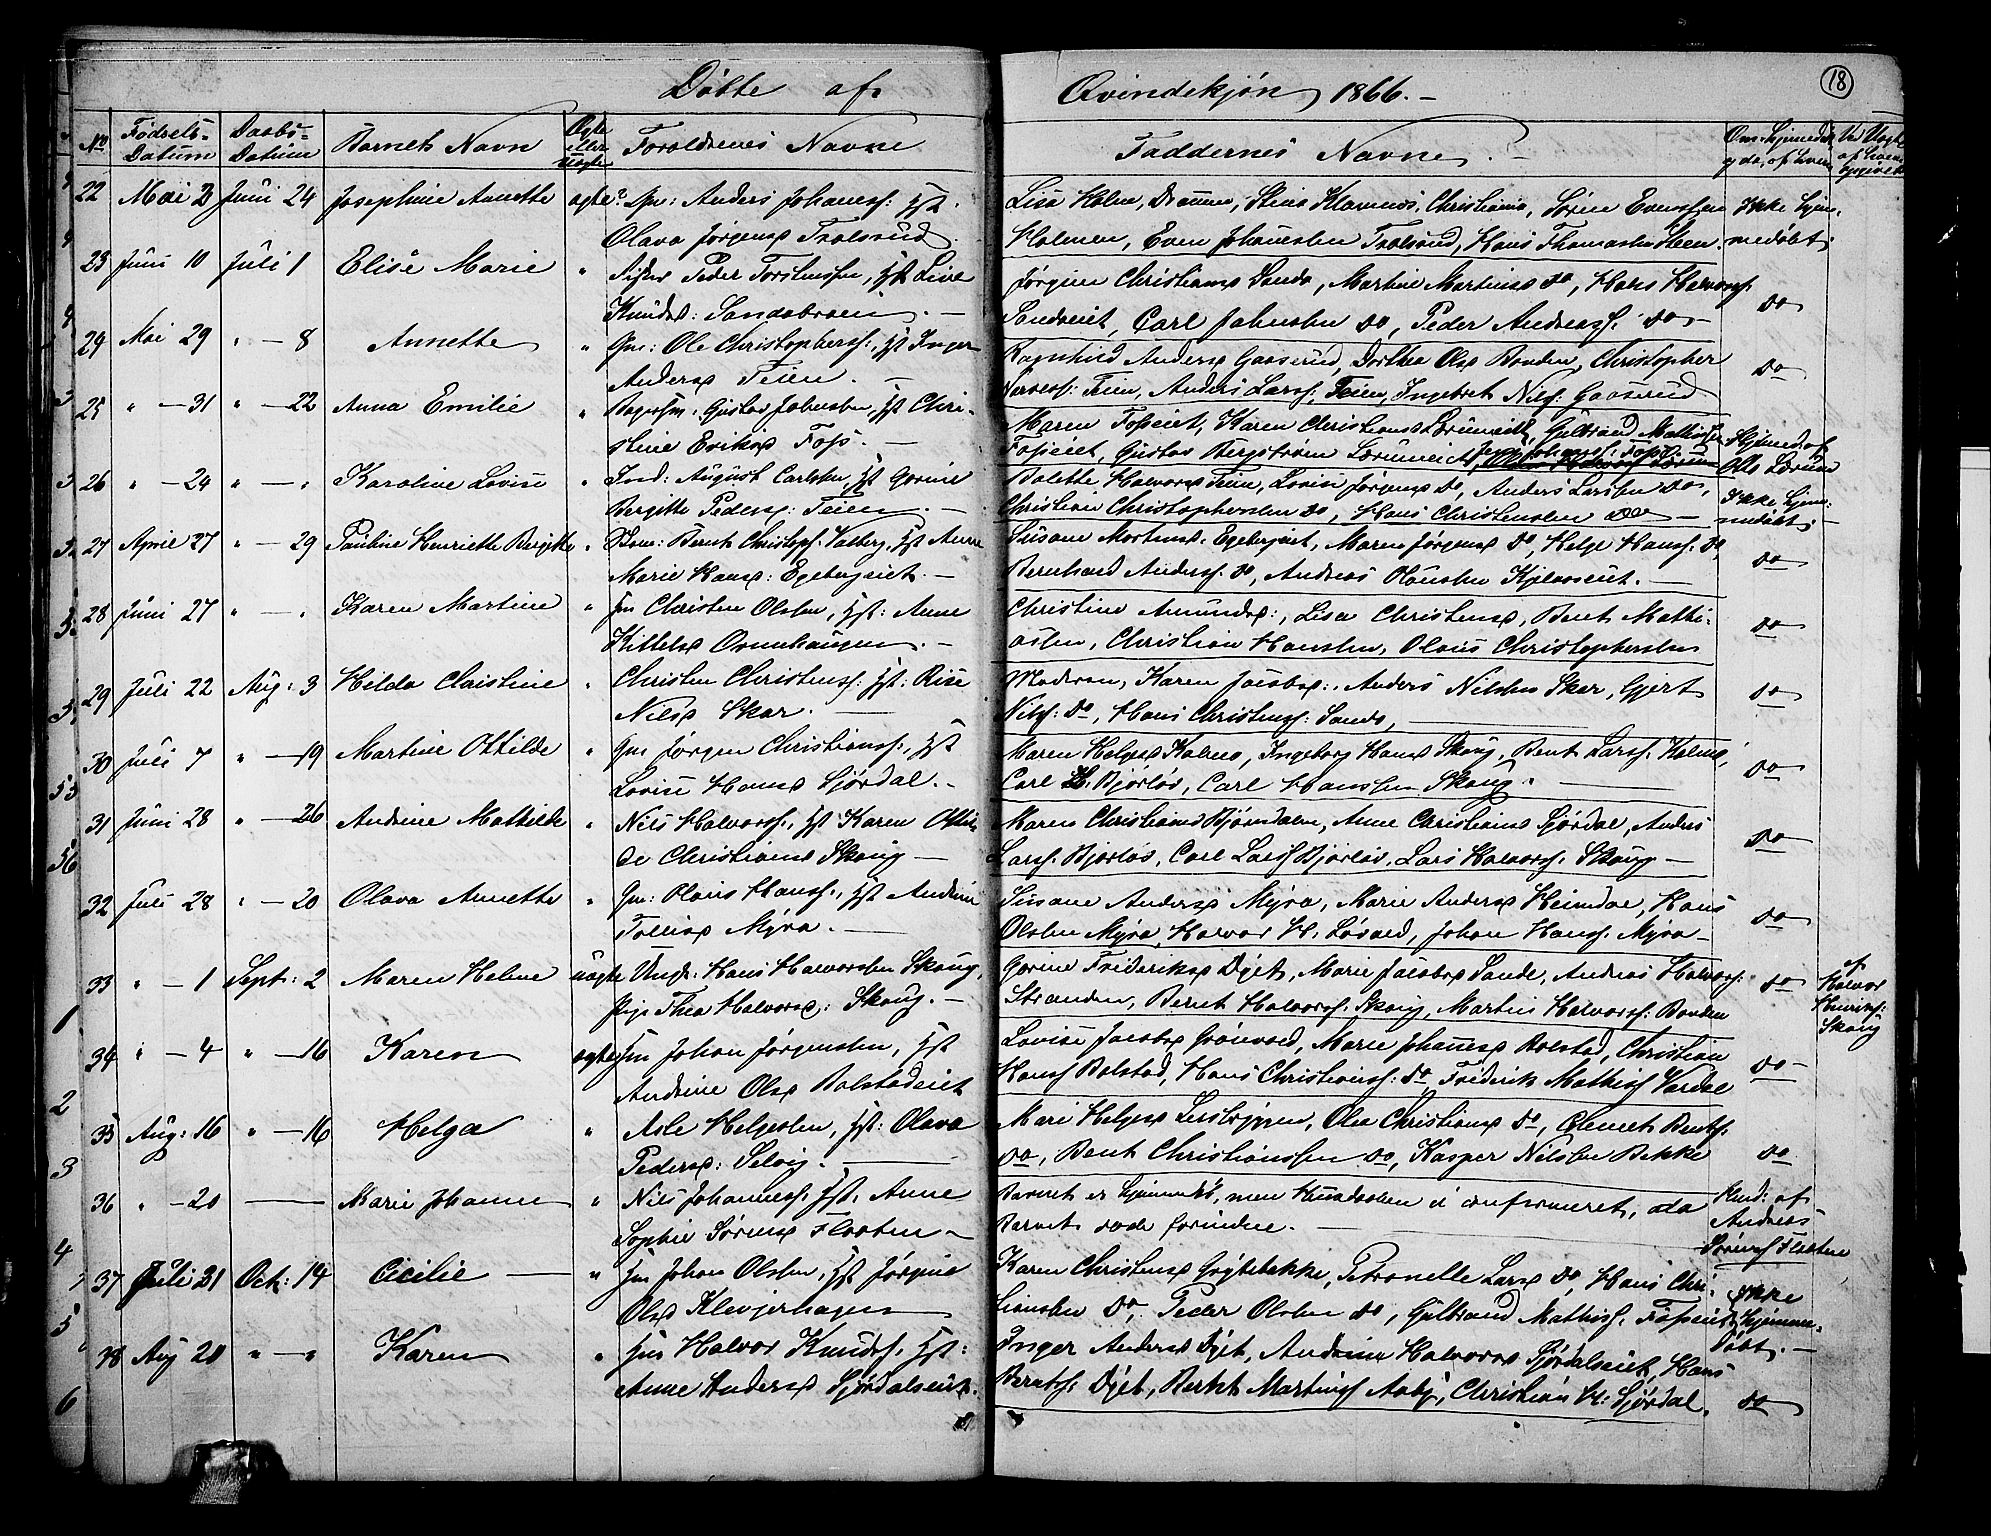 Döbte af
Qvindekjön 1866.-
18
No
Födsels-Datum
Daabs-Datum
Barnets Navn
Ægte eller uægte
Forældrenes Navne
Faddernes Navne.
22 Mai 2 Juni 24 Josephine Annette ægte Anders Johaness:
Olava Jörgensd
Lisa Holm, Christiania, Sörine Evenssen
Holmen, Even Johannessen Hans Thomassen
23 Juni 10 Juli 1 Elise Marie " Peder Torstenssen, Live
Knudsd: Sandabraaten.
Jörgine Christiansd Sando, Martine Martinsd do, Hans Halvorss:
Sandseiet, Carl Johnsen do, Peder Andreass: do
do
24 Mai 29 " - 8 Annette " Gm: Ole Christopherss:, Inger
Andersd Teien.
Ragnhild Andersd Gaaserud, Dorthe Olsd Bonden, Christopher
Teien, Anders Larss: Teien, Ingebret Nilss: Gaaserud
do
25 " - 31 " - 22 Anna Emilie " Gustav Johnsen, Chri-
stine Eriksd Foss.
Maren Fosseiet, Karen Christiansd Gulbrand Mathiss:
Fosseiet, Gustav Bergström
Hjemmed. af
26 " - 24 " - " Karoline Lovise " Ind: August Carlsen, Gorine
Birgitte Pedersd: Teien.
Bolette Halvorsd Teien, Lovise Jörgensd do, Anders Larssen do,
Christian Christophersen do, Hans Christensen do
Ikke hjem-
medöbt.
27 April 27 " - 29 Pauline Henriette Birgitte " Bernt Christophs: Valberg, Anne
Marie Hansd: Egebergeiet.
Susane Mortensd. Egebergeiet, Maren Jörgensd do, Helge Hanss: do
Bernhard Anderss: do, Andreas Olaussen
do
28 Juni 27 " - " Karen Martine " Christen Olsen, Anne
Kittelsd
Christine Amundsd:, Lisa Christensd, Bent Mathi-
assen, Christian Hanssen, Olaus Christophersen
do
29 Juli 22 Aug: 3 Hilda Christine " Christen Christenss:
Nilsd Skar.
Moderen, Karen Jacobsd:, Anders Nilssen Skar, Gjert
Nilss: do, Hans Christenss: Sando,
do
30 Juli 7 " - 19 Martine Ottilde " Gm Jörgen Christianss:,
Lovise Hansd Sjördal.
Maren Helgesd Holmo, Ingeborg Hansd Skoug, Bent Larss: Holmo,
Carl Bjerlös, Carl Hanssen Skoug.
do
31 Juni 28 " - 26 Andrine Mathilde " Nils Halvorss:, Karen Ottil-
de Christiansd Skoug
Karen Christiansd Björndalen, Anne Christiansd Sjördal, Anders
Larss: Bjerlös, Carl Larss Bjerlös, Lars Halvorss: Skoug
do
32 Juli 28 " - 20 Olava Annette " Gm: Olaus Hanss:, Andrine
Tollisd Myra.
Susane Andersd Myra, Marie Andersd Heimdal, Hans
Olssen Myra, Halvor H. Johan Hanss: Myra
do
33 " - 1 Sept: 2 Maren Helene uægte Ungk: Hans Halvorsen Skoug,
Pige Thea Halvorsd: Skoug.
Gorine Frideriksd Dyet, Marie Jacobsd Sande, Andreas Halvorss:
Stranden, Bernt Halvorss: Skoug, Martin Halvorss: Bonden
do
af
Halvor
Henriks:
Skoug
34 " - 4 " - 16 Karen ægte Johan Jörgensen,
Andrine Olsd Bolstadeiet
Lovise Jacobsd Grönvold, Marie Johannesd Bolstad, Christian
Hanss Bolstad, Hans Christianss: do, Friderik Mathiss
do
35 Aug: 16 " - 16 Helga " Asle Helgesen, Olava
Pedersd: Selvig.
Mari Helgesd Olea Christiansd do, Clemet Bents:
do, Bent Christianssen do, Kasper Nilssen Bekke
do
36 " - 20 Marie Johanne " Nils Johanness: Anne
Sophie Sörensd Flaaten
Barnet er hjemmedöbt, men Hjemmedaaben ei confirmeret, da
Barnet döde forinden.
af
Andreas
Sörenss Flaaten
37 Juli 31 Oct: 14 Cicilie " Johan Olsen, Jörgine
Olsd Klevjerhagen
Karen Christensd Grytebekke, Petronelle Larsd do, Hans Chri-
stensen do, Peder Olsen do, Gulbrand Mathiss. Fosseiet
Ikke
hjemme-
döbt.
38 Aug 20 " - " Karen " Halvor Knuds.
Anne Andersd Sjördalseiet.
Inger Andersd Dyet, Andrine Halvorsd Sjördalseiet, Hans
Berntss: Dyet, Bernt Martinss Aaby, Christian H: Sjördal.
do